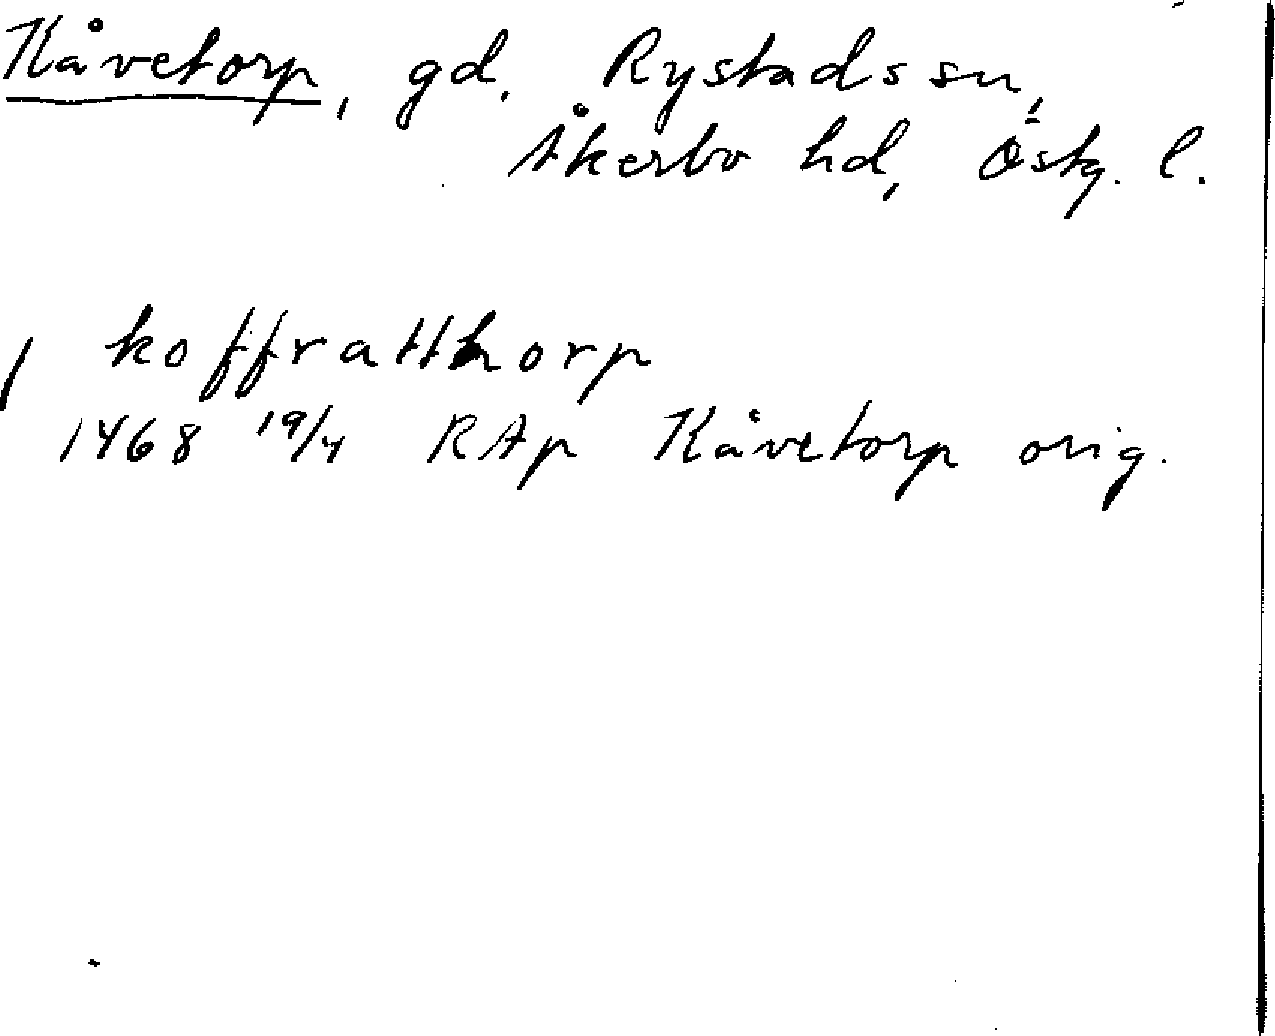 Kåvetorp, gd. Rystads sn,
Åkerbo hd, Östg. l.
koffratthorp
1468 19/4 RAp Kåvetorp orig.